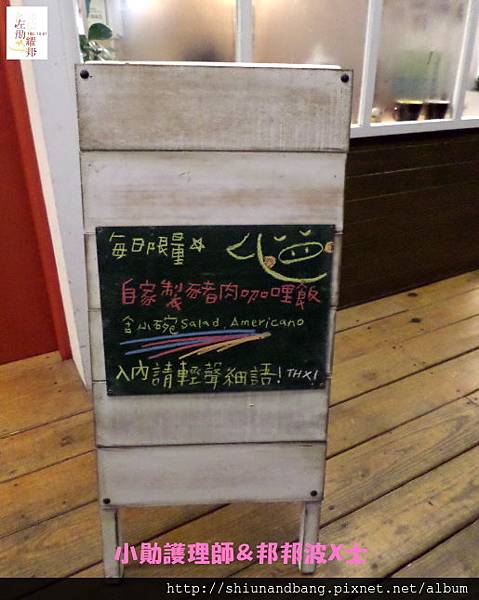 左勛
耀邦
每日限量☆
自家製豬肉咖哩飯
含小碗 Salad, Americano
入內請輕聲細語! THX!
小勛護理師&邦邦波X士
http://shiunandbang.pixnet.net/album